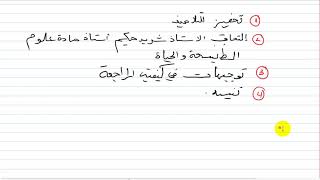 ① تحفيز تلاميذ
② التحاق الاستاذ شريد حكيم أستاذ مادة علوم
الطبيعة والحياة
③ توجيهات في كيفية المراجعة
④ تنبيه.